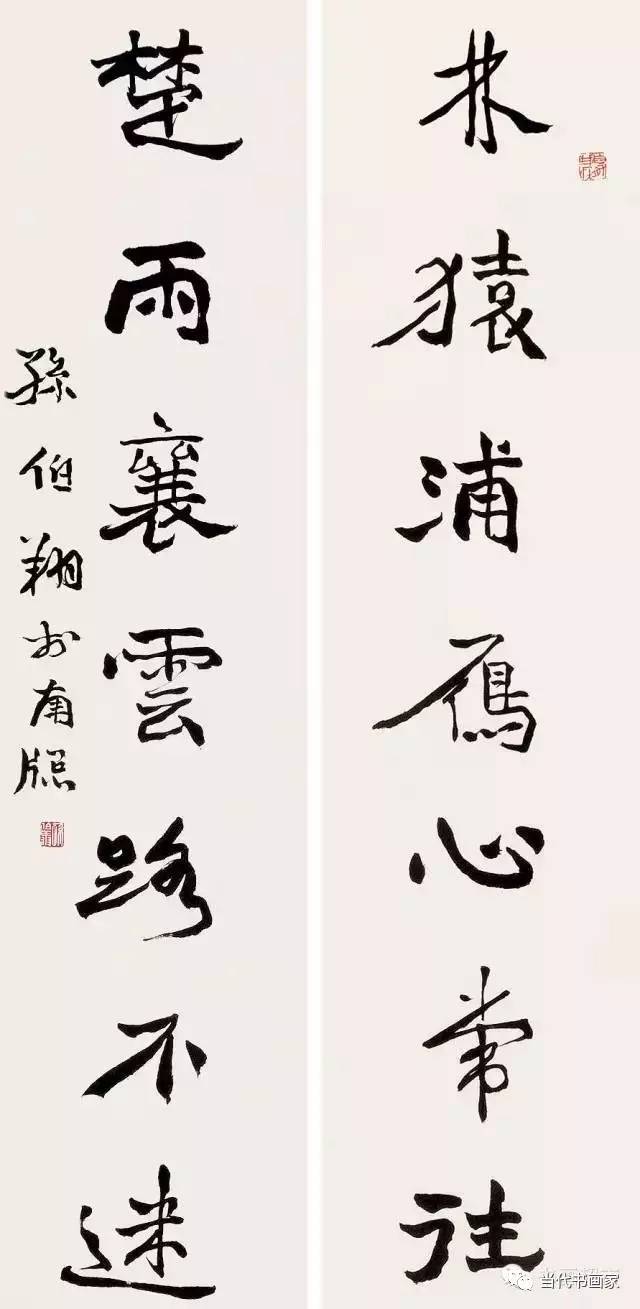 林猿浦鴈心常往
楚雨襄雲路不迷
孫伯翔於南牕
当代书画家